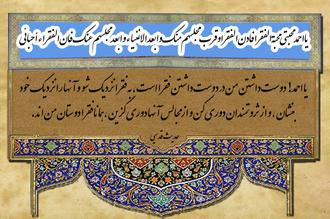 یا احمد محبتی محبة الفقراء فادن الفقراء و قرب مجلسهم منک و ابعد الاغنیاء و ابعد مجلسهم عنک فان الفقراء احبائی
یا احمد! دوست داشتن من در دوست داشتن فقرا است، به فقرا نزدیک شو و آنها را نزدیک خود
بنشان، و از ثروتمندان دوری کن و از مجالس آنها دوری گزین، همانا فقرا دوستان من اند.
حدیث قدسی